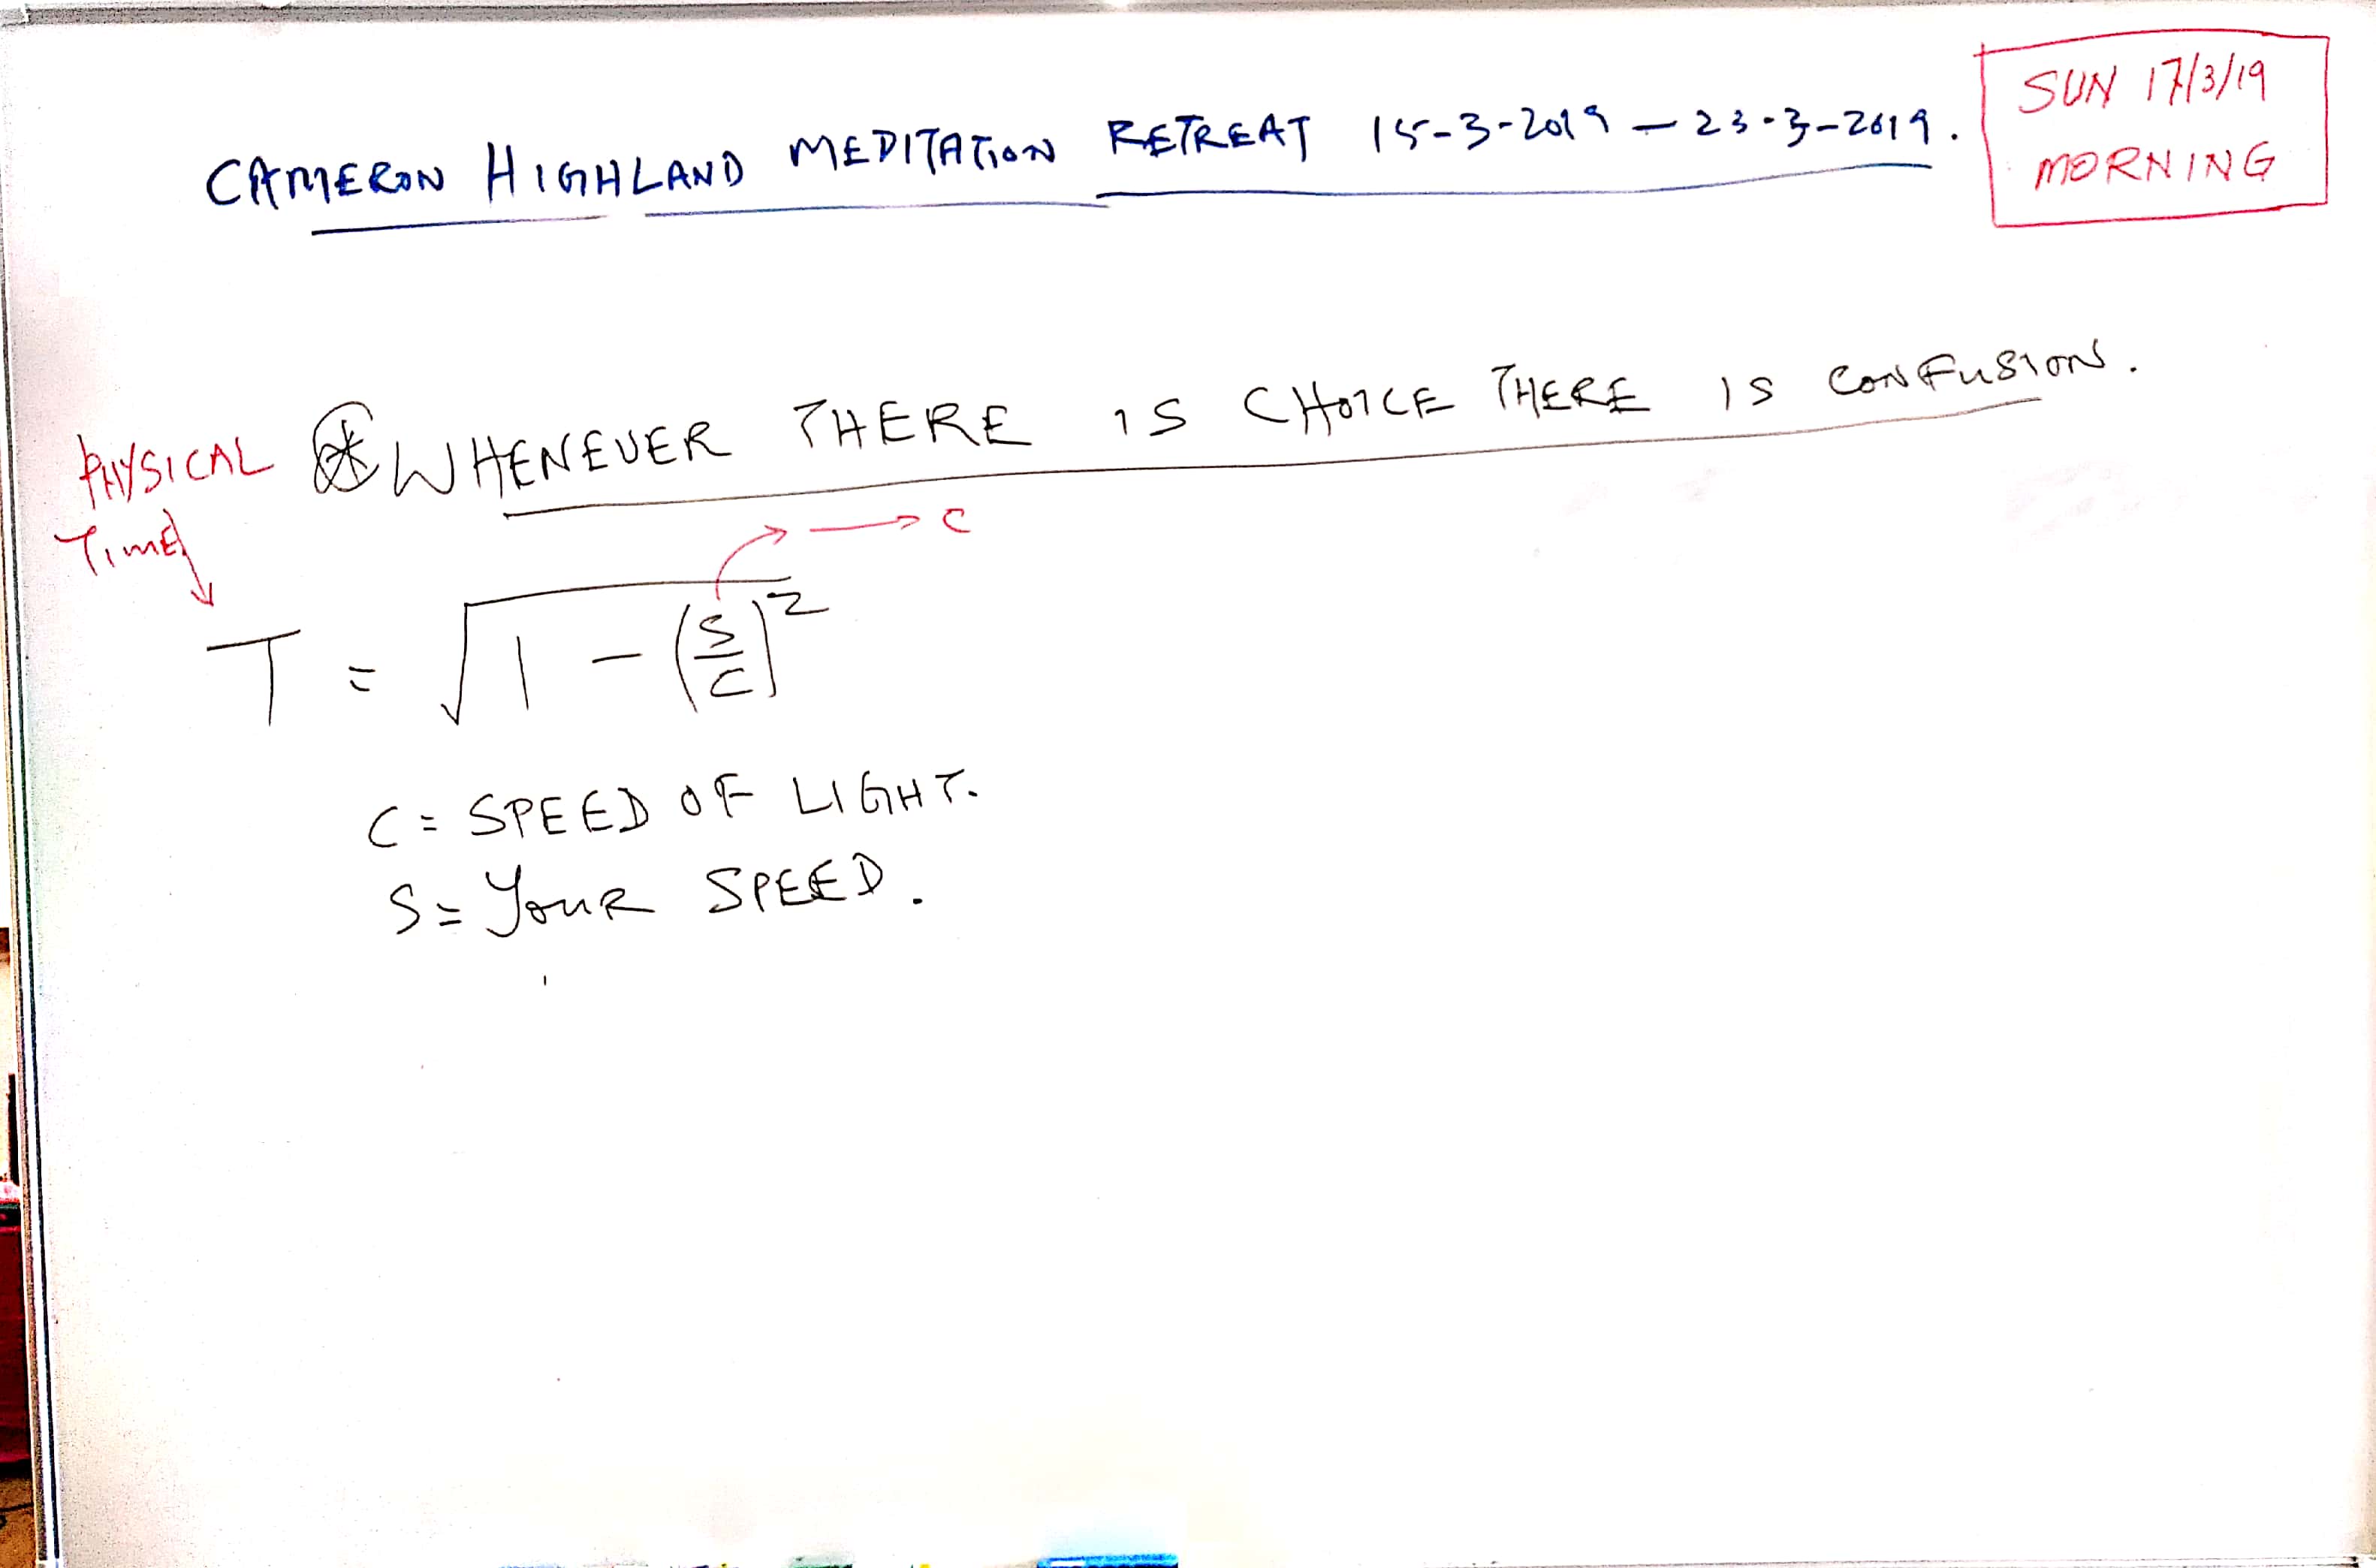 CAMERON HIGHLAND MEDITATION RETREAT 15-3-2019 — 23-3-2019.
SUN 17/3/19
MORNING
⊛ WHENEVER THERE IS CHOICE THERE IS CONFUSION.
PHYSICAL
TIME
→ C
T = √1 - (S/C)²
C = SPEED OF LIGHT.
S = YOUR SPEED.